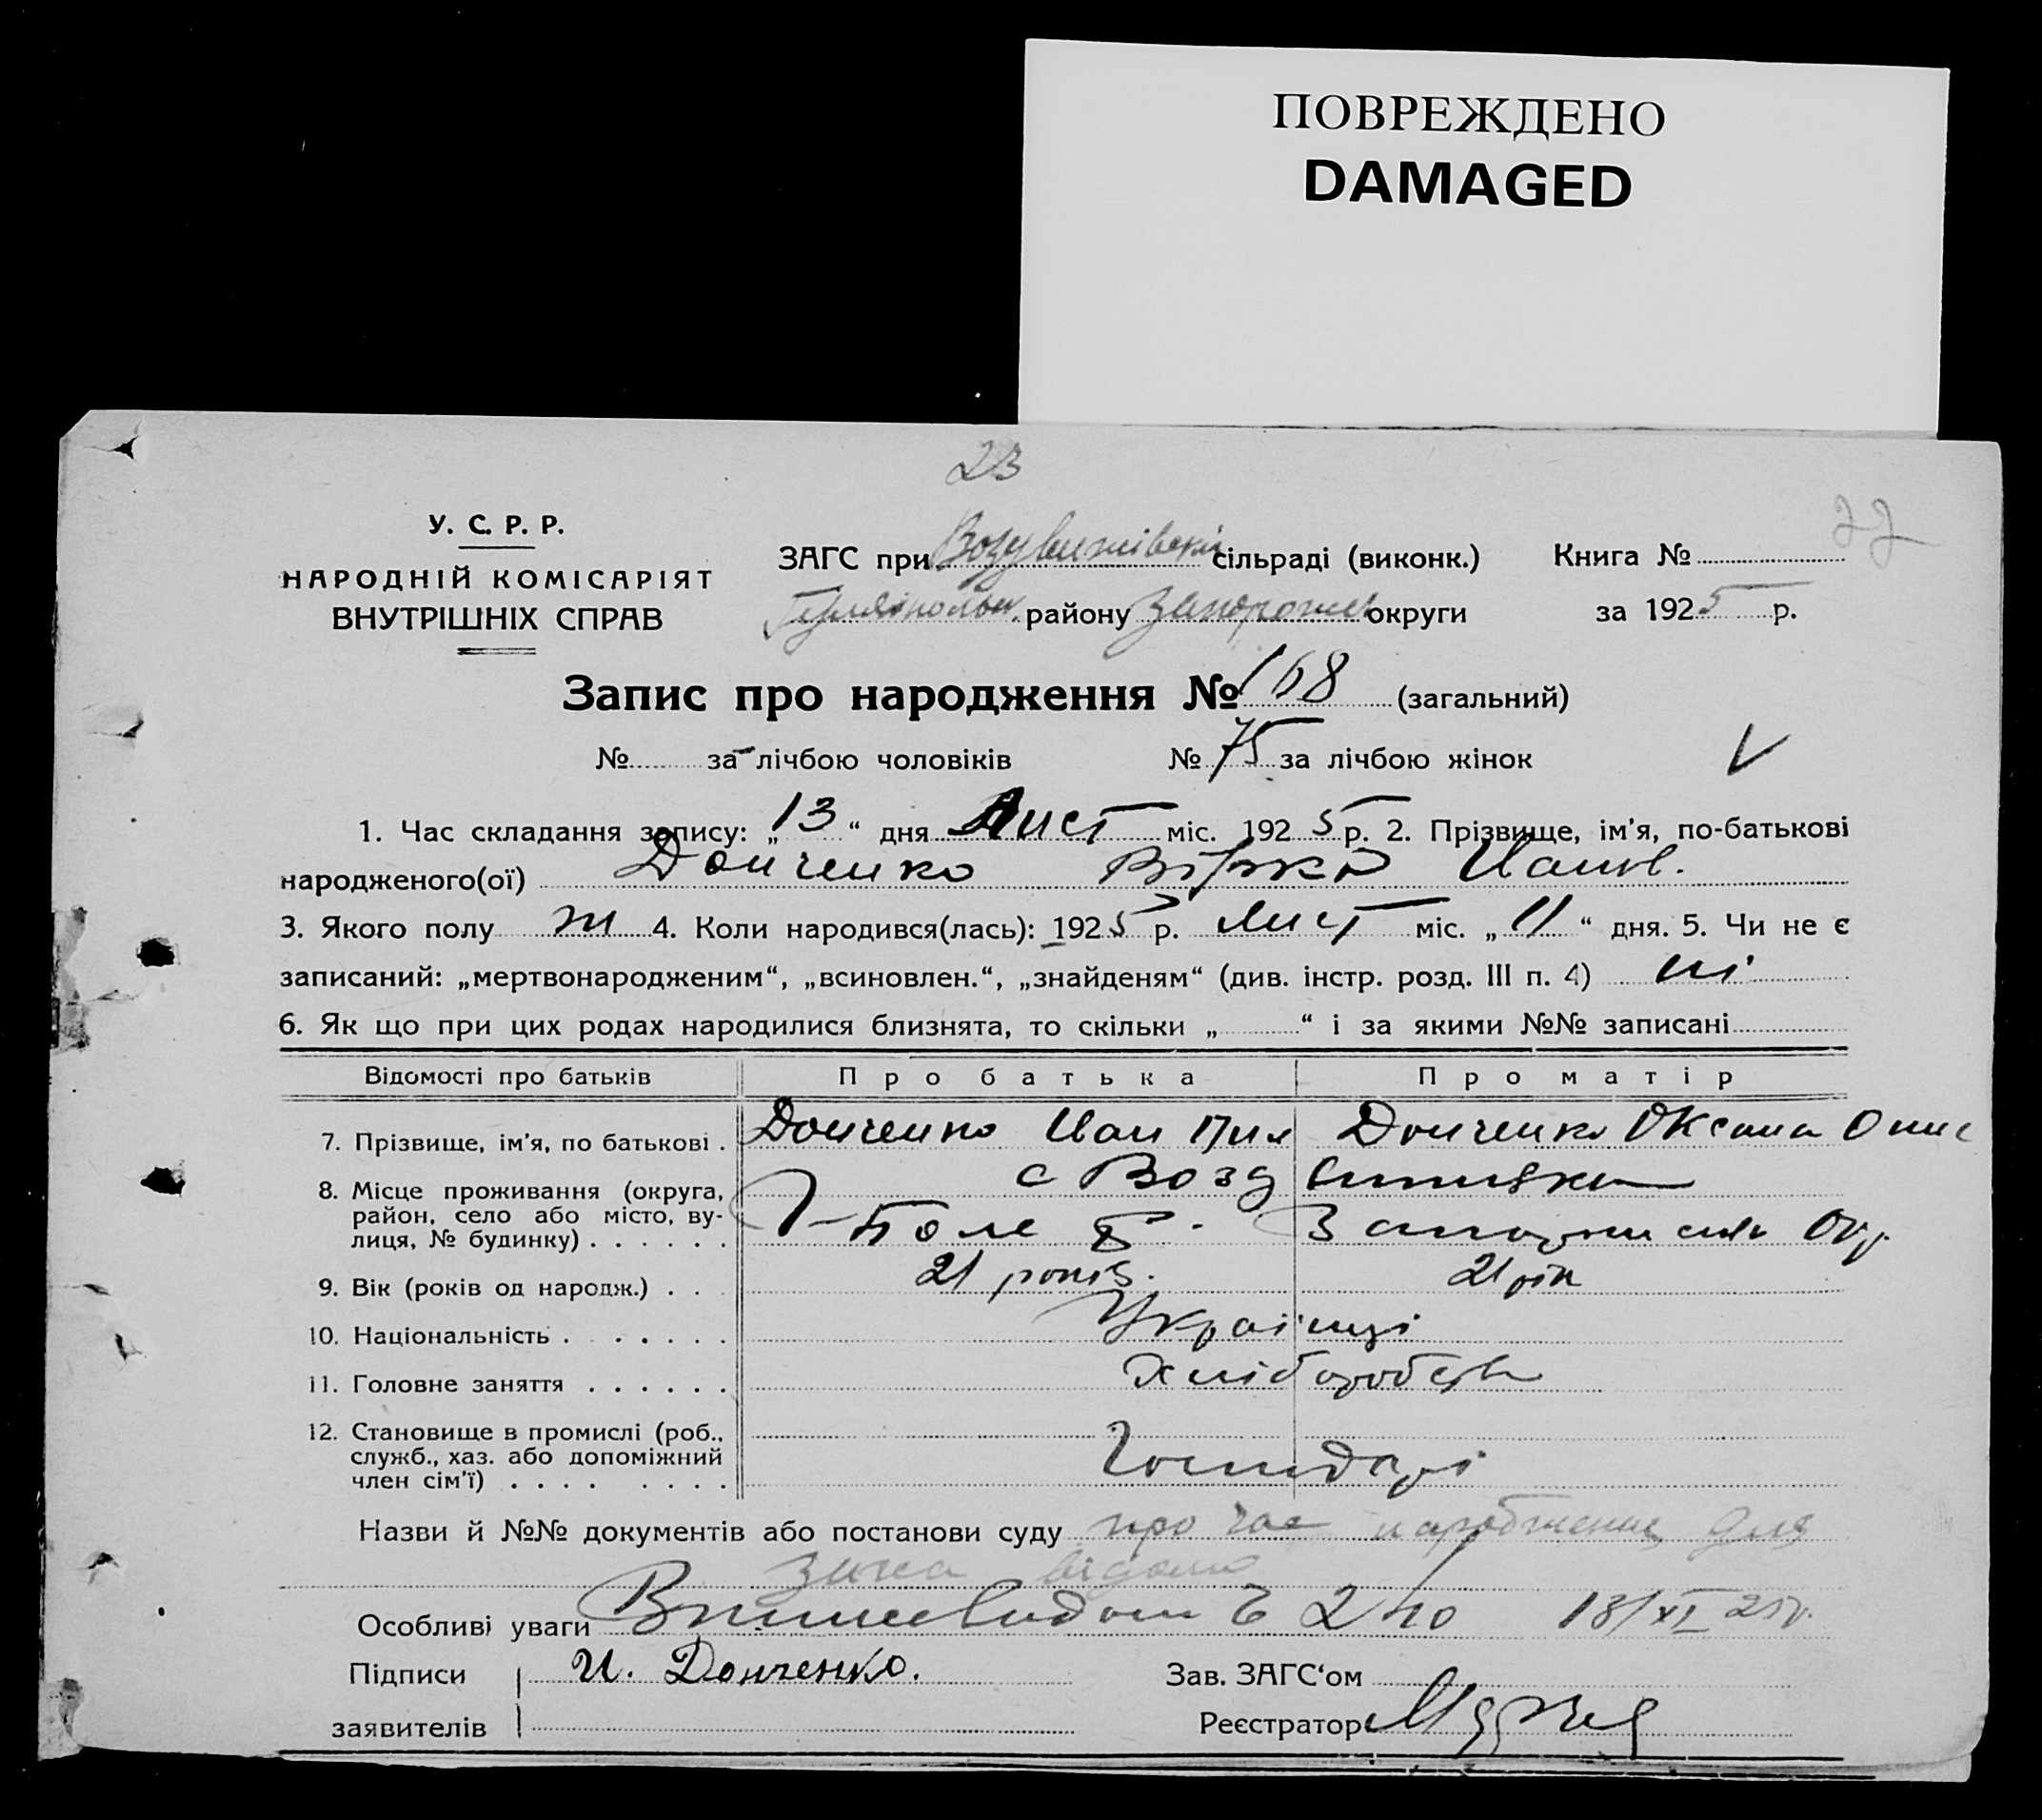 ПОВРЕЖДЕНО
DAMAGED
23
22
У. С. Р. Р.
НАРОДНІЙ КОМІСАРІЯТ
ВНУТРІШНІХ СПРАВ
ЗАГС при сільраді (виконк.) Книга №
району округи за 1925 р.
Запис про народження № 168 (загальний)
№ за лічбою чоловіків № 75 за лічбою жінок V
1. Час складання запису: „13“ дня Лист міс. 1925 р. 2. Прізвище, ім'я, по-батькові
народженого(ої) Донченко Вірка Иванов.
3. Якого полу ж 4. Коли народився(лась): 1925 р. лист міс. „11“ дня. 5. Чи не є
записаний: „мертвонародженим“, „всиновлен.“, „знайденям“ (див. інстр. розд. III п. 4) ні
6. Як що при цих родах народилися близнята, то скільки „ “ і за якими №№ записані
Відомості про батьків Про батька Про матір
7. Прізвище, ім'я, по батькові . Донченко Иван Пил Донченко Оксана Онис
8. Місце проживання (округа, район, село або місто, вулиця, № будинку) . . . . . . с Воздвиживка
Г-Поле р. Запорижск Окр.
9. Вік (років од народж.) . . . 21 років. 21 рік
10. Національність . . . . . . Українці
11. Головне заняття . . . . . . Хліборобств
12. Становище в промислі (роб., служб., хаз. або допоміжний член сім'ї) . . . . . . . . Господарі
Назви й №№ документів або постанови суду про час народження для
відомо
Особливі уваги 13/XI 25р.
Підписи И. Донченко. Зав. ЗАГС‘ом
заявителів Реєстратор